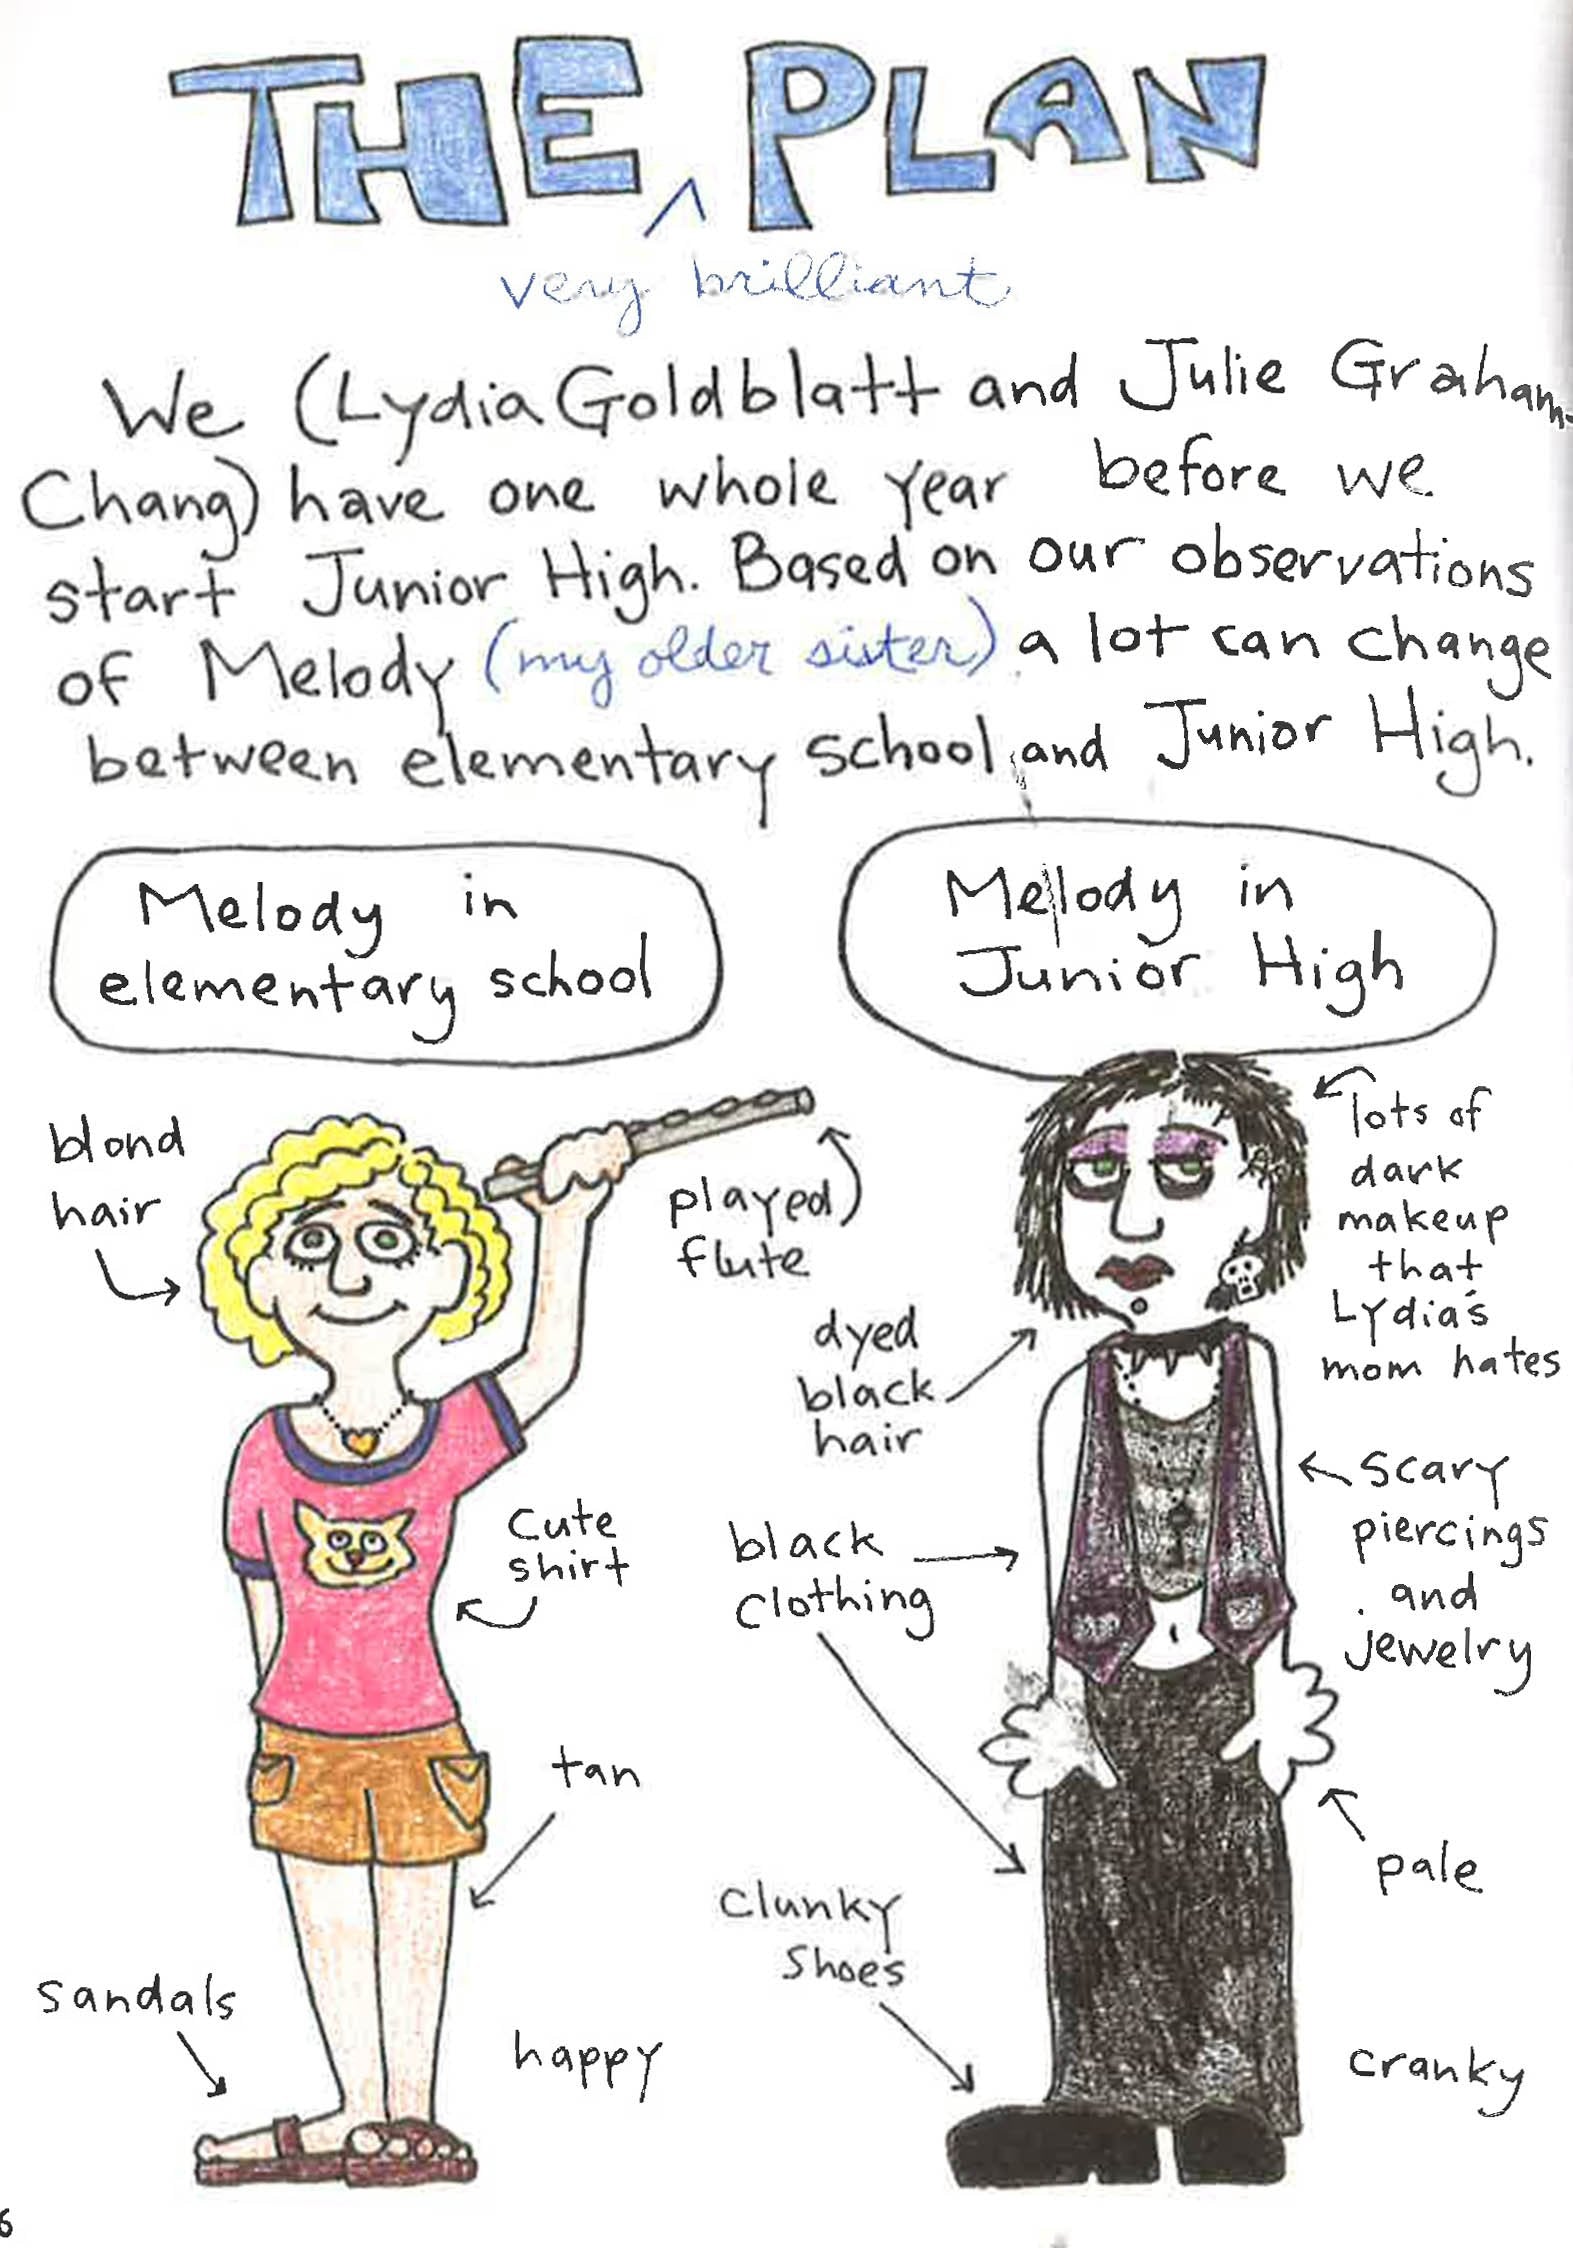 THE PLAN
^
very brilliant
We (Lydia Goldblatt and Julie Graham-
Chang) have one whole year before we
start Junior High. Based on our observations
of Melody (my older sister) a lot can change
between elementary school and Junior High.
Melody in
elementary school
Melody in
Junior High
blond
hair
played
flute
cute
shirt
tan
sandals
happy
lots of
dark
makeup
that
Lydia's
mom hates
dyed
black
hair
scary
piercings
and
jewelry
black
clothing
pale
clunky
shoes
cranky
6